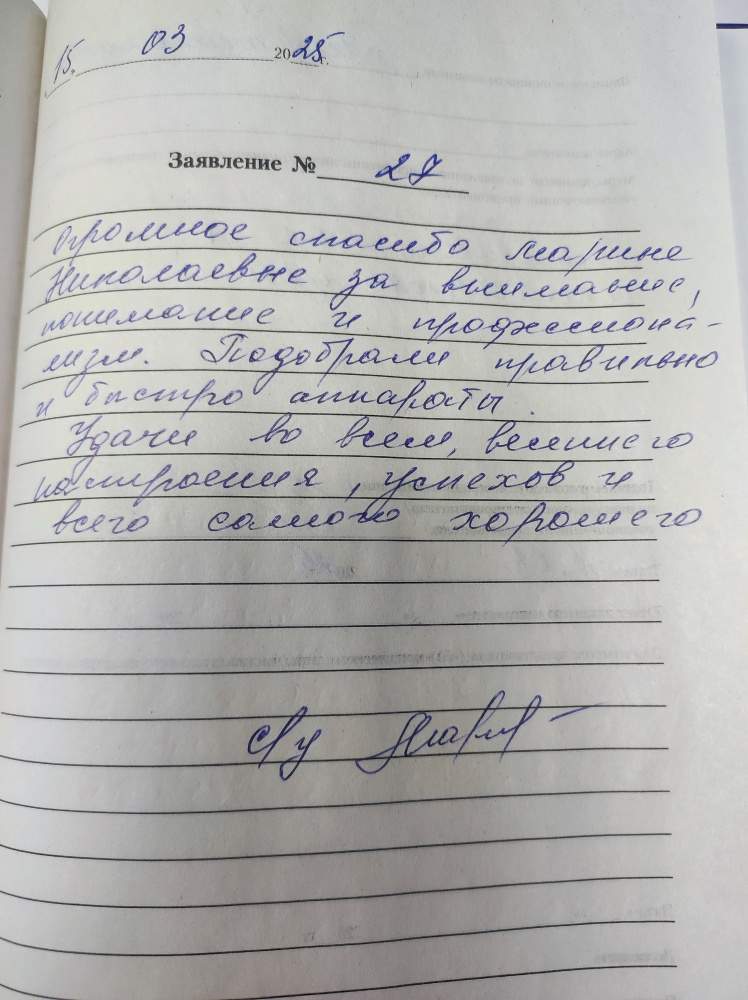 15. 03 2025г.
Заявление № 27
Огромное спасибо Марине
Николаевне за внимание,
понимание и профессиона-
лизм. Подобрали правильно
и быстро аппараты.
Удачи во всем, весеннего
настроения, успехов и
всего самого хорошего